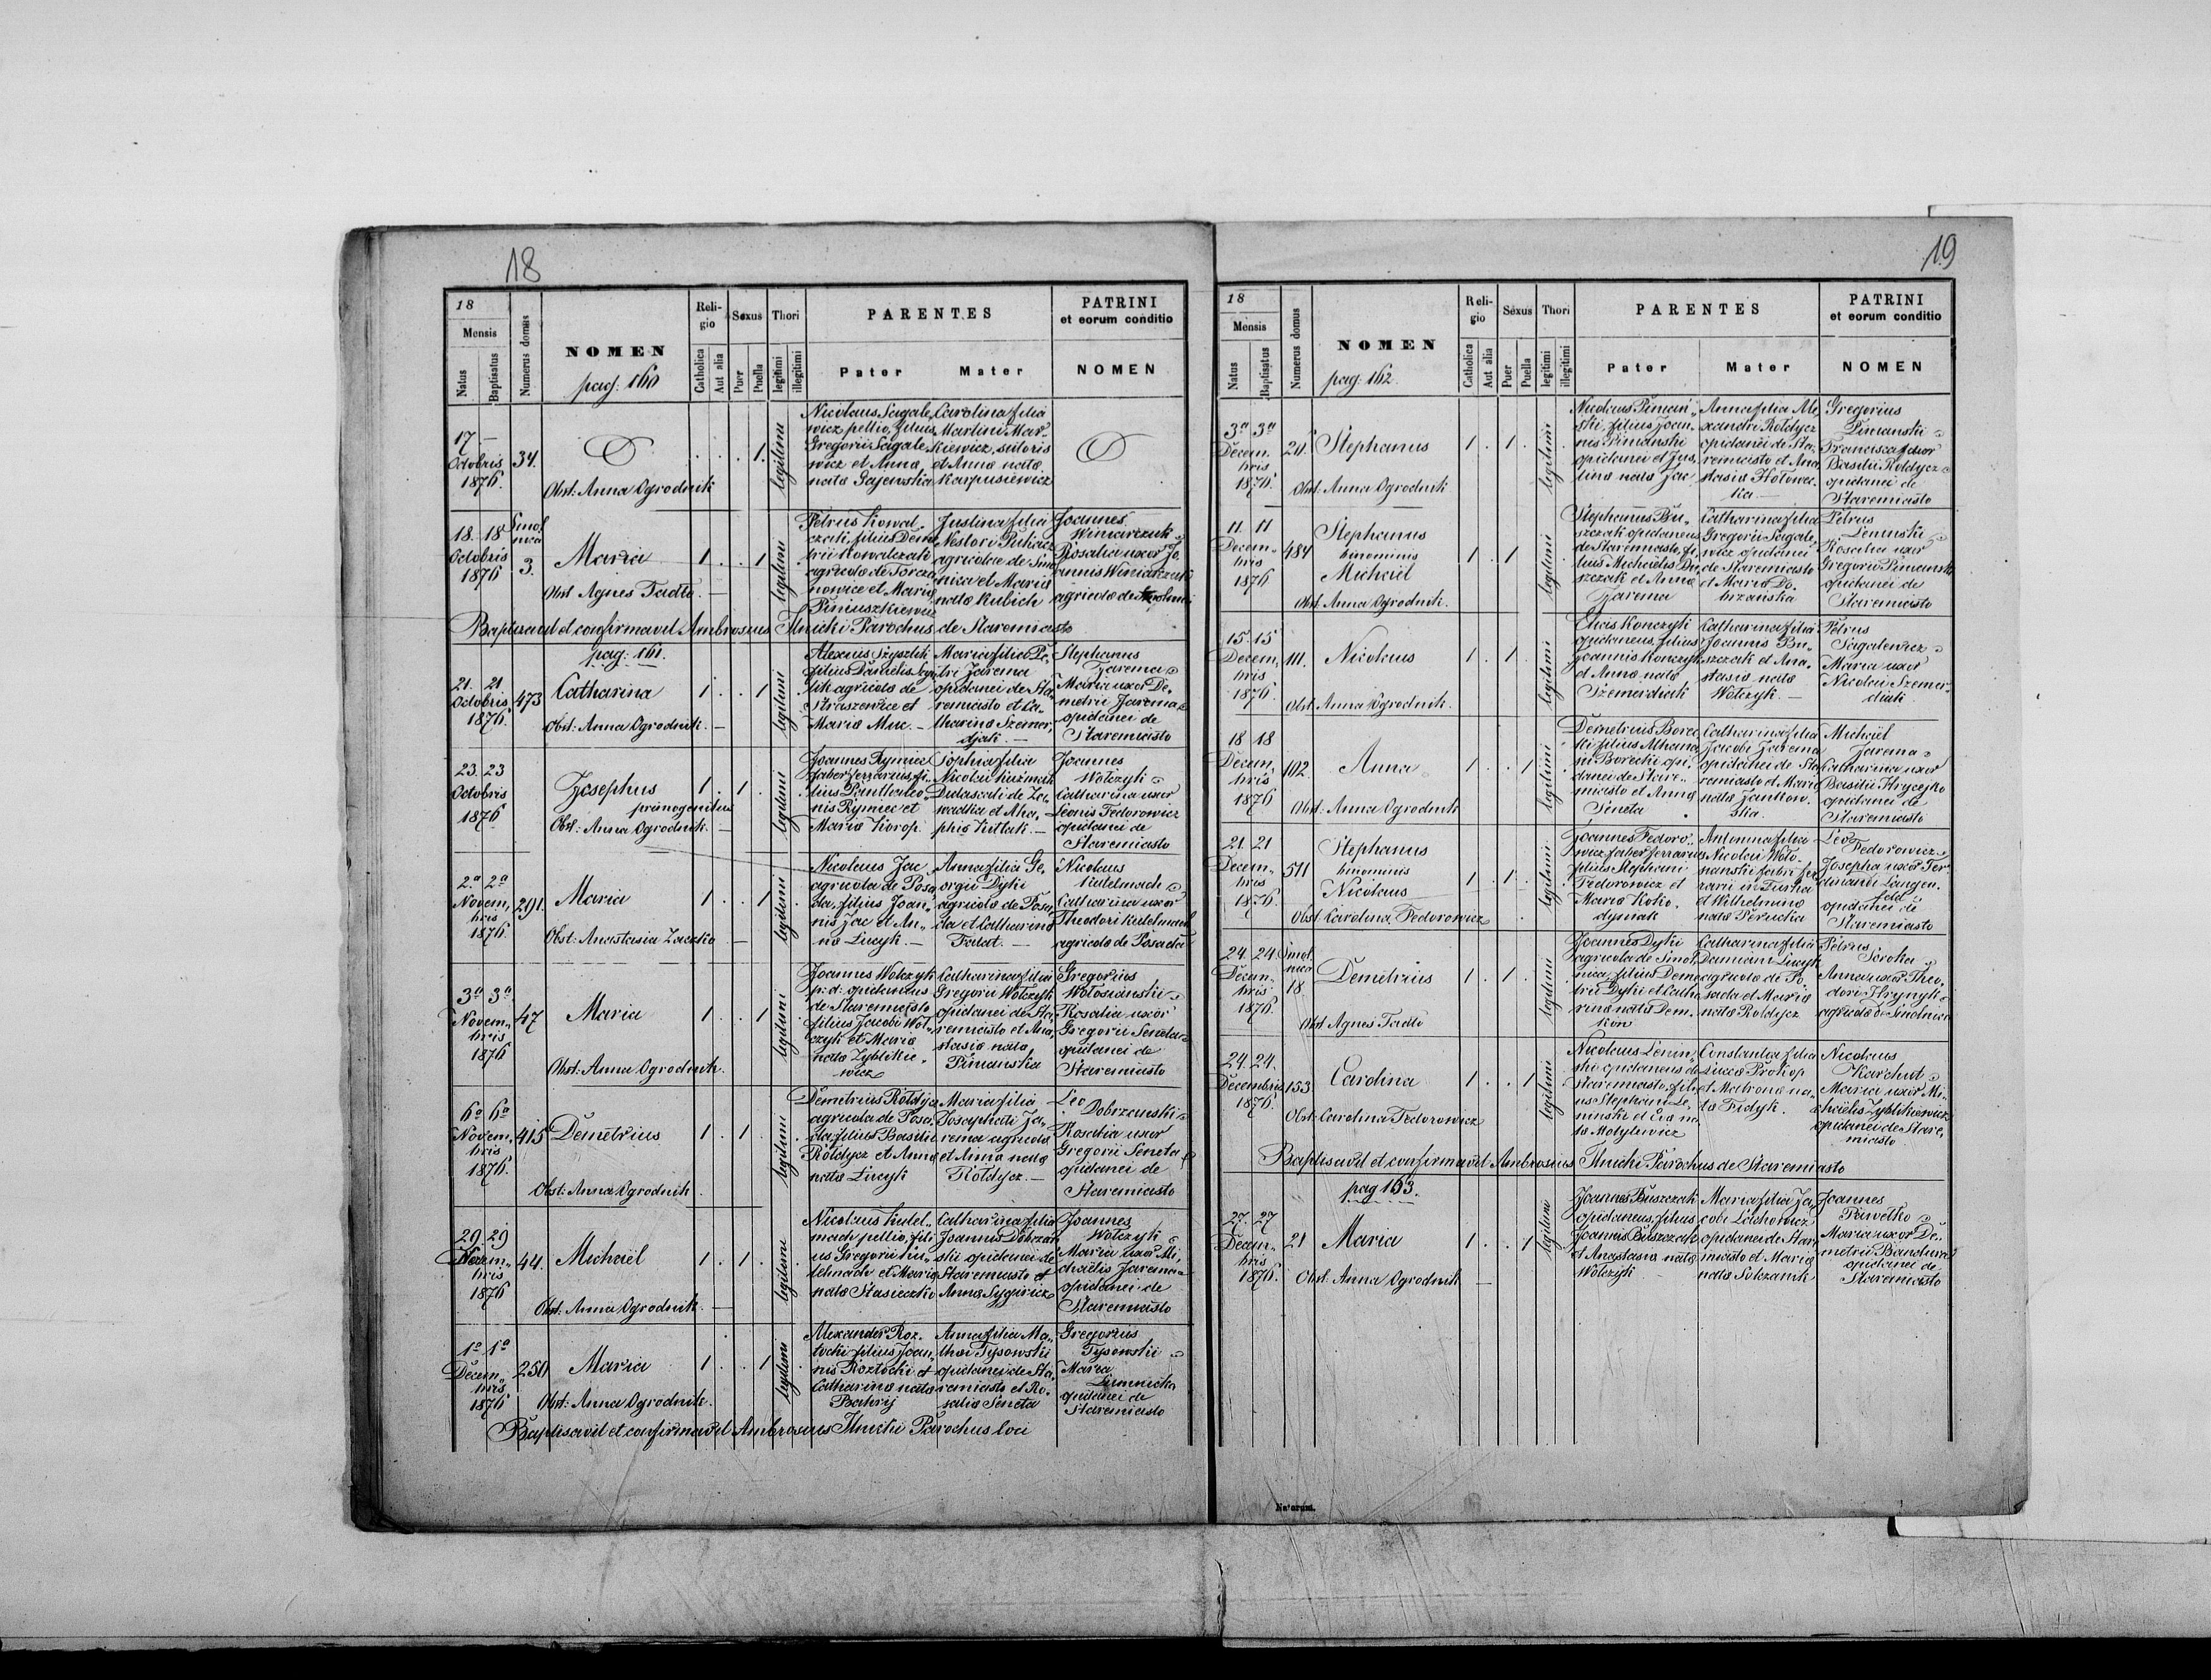 18
18
Mensis
Natus
Baptisatus
Numerus domus
NOMEN
pag: 160
Religio
Catholica
Aut alia
Sexus
Puer
Puella
Thori
legitimi
illegitimi
PARENTES
Pater
Mater
PATRINI
et eorum conditio
NOMEN
17
Octobris
1876.
34.
1.
legitimi
Obst: Anna Ogrodnik
Nicolaus Sagale
wicz pellio, filius
Gregorii Sagale
wicz et Anna
nata Gajewska
Carolina filia
Martini Mar
kiewicz, sutoris
et Anna nata
Karpusiewicz
18. 18
Octobris
1876
3.
Maria
1 . . 1
legitimi
Obst Agnes Fadlo. —
Petrus Kowal
czak filius Deme
trii Kowalczak
agricola de Torcza
nowice et Maria
Piniuszkiewicz
Justina filia
Nestori Pukacz
agricolae de Smo
nica et Maria
nata Kubich
Joannes
Winiarczuk
Rosalia uxor Jo
annis Winiarczuk
agricola de
Baptisavit et confirmavit Ambrosius Ilnicki Parochus de Staremiasto
pag: 161.
21. 21
Octobris
1876.
473
Catharina
1 . . 1
legitimi
Obst: Anna Ogrodnik. —
Alexius Szyszlik
filius Danielis Szysz
lik agricola de
Straszewice et
Maria Muc. —
Maria filia Pe
tri Jarema
opidanei de Sta
remiasto et Ca
tharina Szemer
djak. —
Stephanus
Jarema
Maria uxor De
metrii Jarema
opidanei de
Staremiasto
23. 23
Octobris
1876
Josephus
primogenitus
1 . 1 .
legitimi
Obst.: Anna Ogrodnik. —
Joannes Rymiec
faber ferrarius, fi
lius Pantaleo
nis Rymiec et
Maria Korop.
Sophia filia
Nicolai Kuzmak
Didascali de Za
wadka et Aha
phia Kitlak. —
Joannes
Wolczyk
Catharina uxor
Leonis Fedorowicz
opidanei de
Staremiasto
2a 2a
Novem
bris
1876.
291.
Maria
1 . . 1
legitimi
Obst: Anastasia Zaczko —
Nicolaus Jac
agricola de Posa
da, filius Joan
nis Jac et An
na Lucyk. —
Anna filia Ge
orgii Dyki
agricola de Posa
da et Catharina
Falat. —
Nicolaus
Kutelmach
Catharina uxor
Theodori Kutelmach
agricola de Posada
3a 3a
Novem
bris
1876
47
Maria
1 . . 1
legitimi
Obst: Anna Ogrodnik.
Joannes Wolczyk
p: d: opidaneus
de Staremiasto
filius Jacobi Wol
czyk et Maria
nata Zyblikie
wicz
Catharina filia
Gregorii Wolczyk
opidanei de Sta
remiasto et Ana
stasia nata
Pimanska
Gregorius
Wolosianski
Rosalia uxor
Gregorii Seneta
opidanei de
Staremiasto
6a 6a
Novem
bris
1876.
415
Demetrius
1 . 1 .
legitimi
Obst: Anna Ogrodnik.
Demetrius Roldycz
agricola de Posa
da filius Basilii
Roldycz et Anna
nata Lucyk
Maria filia
Josaphati Ja
rema agricola
et Anna nata
Roldycz. —
Leo
Dobrzanski
Rosalia uxor
Gregorii Seneta
opidanei de
Staremiasto
29. 29
Novem
bris
1876
44.
Michaël
1 . 1 .
legitimi
Obst: Anna Ogrodnik. —
Nicolaus Kutel
mach pellio, fili
us Gregorii Ku
telmach et Maria
nata Stasieczko
Catharina filia
Joannis Dobrzan
ski opidanei de
Staremiasto et
Anna Sygiricz
Joannes
Wolczyk
Maria uxor Mi
chaëlis Jarema
opidanei de
Staremiasto
1a 1a
Decem
bris
1876
250
Maria
1 . . 1
legitimi
Obst: Anna Ogrodnik.
Alexander Roz
locki filius Joan
nis Rozlocki et
Catharina nata
Bahrij
Anna filia Ma
thei Tysowski
opidanei de Sta
remiasto et Ro
salia Seneta
Gregorius
Tysowski
Maria
opidanei de
Staremiasto
Baptisavit et confirmavit Ambrosius Ilnicki Parochus loci
19
18
Mensis
Natus
Baptisatus
Numerus domus
NOMEN
pag: 162.
Religio
Catholica
Aut alia
Sexus
Puer
Puella
Thori
legitimi
illegitimi
PARENTES
Pater
Mater
PATRINI
et eorum conditio
NOMEN
3a 3a
Decem
bris
1876.
Stephanus
1 . 1 .
legitimi
Obst: Anna Ogrodnik
Nicolaus Piman
ski, filius Joan
nis Pimanski
opidanei et Jus
tina nata Jac
Anna filia Ale
xandri Roldycz
opidanei de Sta
remiasto et Ana
stasia Holowec
ka —
Gregorius
Pimanski
Francisca uxor
Basilii Roldycz
opidanei de
Staremiasto
11 11
Decem
bris
1876
484
Stephanus
binominis
Michaël
1 . 1
legitimi
Obst: Anna Ogrodnik.
Stephanus Bu
szczak opidaneus
de Staremiasto, fi
lius Michaëlis Bu
szczak et Anna
Jarema
Catharina filia
Gregorii Sagale
wicz opidanei
de Staremiasto
et Maria Do
brzanska
Petrus
Leninski
Rosalia uxor
Gregorii Pimanski
opidanei de
Staremiasto
15. 15
Decem
bris
1876.
111.
Nicolaus
1 . 1 .
legitimi
Obst: Anna Ogrodnik.
Konczyk
opidaneus, filius
Joannis Konczyk
et Anna nata
Szemerdiak
Catharina filia
Joannis Bu
szczak et Ana
stasia nata
Wolczyk. —
Petrus
Sagalewicz
Maria uxor
Nicolai Szemer
diak
18 18
Decem
bris
1876
102.
Anna
1 . . 1
legitimi
Obst. Anna Ogrodnik
Demetrius Borec
ki filius Athana
sii Borecki opi
danei de Stare
miasto et Anna
Seneta
Catharina filia
Jacobi Jarema
opidanei de Sta
remiasto et Maria
nata Jankow
ska. —
Michaël
Jarema
Catharina uxor
Basilii Hrycejko
opidanei de
Staremiasto
21. 21
Decem
bris
1876.
511
Stephanus
binominis
Nicolaus
1 . 1 .
legitimi
Obst: Carolina Fedorowicz
Joannes Fedoro
wicz faber ferrarius
filius Stephani
Fedorowicz et
Maria Koko
dyniak
Antonina filia
Nicolai Wolo
nanski fabri fer
rarii in Turka
et Wilhelmina
nata Perucka
Leo
Fedorowicz
Josepha uxor Fer
dinandi Langen
feld
opidanei de
Staremiasto
24. 24
Decem
bris
1876.
Smol
nica
18
Demetrius
1 . 1 .
legitimi
Obst Agnes Fadlo
Joannes Dyki
agricola de Smol
nica, filius Deme
trii Dyki et Catha
rina nata Dem
kow
Catharina filia
Damiani Lucyk
agricola de Po
sada et Maria
nata Roldycz
Petrus
Soroka
Anna uxor Theo
dori Hrynyk
agricola de Smolnica
24. 24.
Decembris
1876.
153
Carolina
1 . . 1
legitimi
Obst: Carolina Fedorowicz
Nicolaus Lenin
ski opidaneus de
Staremiasto, fili
us Stephani Le
ninski et Eva na
ta Motylewicz
Constantia filia
Lucae Prokop
et Matrona na
ta Fidyk.
Nicolaus
Karchut
Maria uxor Mi
chaëlis Zyblikiewicz
opidanei de Stare
miasto
Baptisavit et confirmavit Ambrosius Ilnicki Parochus de Staremiasto
pag 163.
27. 27
Decem
bris
1876.
21
Maria
1 . . 1
legitimi
Obst. Anna Ogrodnik —
Joannes Buszczak
opidaneus, filius
Joannis Buszczak
et Anastasia nata
Wolczyk
Maria filia Ja
cobi Lachowicz
opidanei de Stare
miasto et Maria
nata Solczanik
Joannes
Pawelko
Maria uxor De
metrii Bandura
opidanei de
Staremiasto
Natorum.